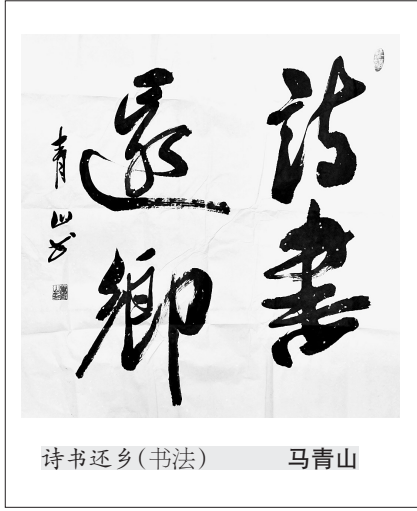 詩書
還鄉
青山书
诗书还乡(书法) 马青山